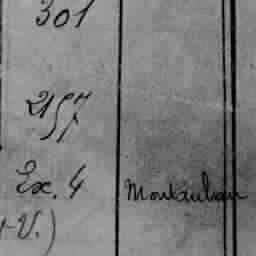 301
2157
Ex. 4 Montauban
-V.)